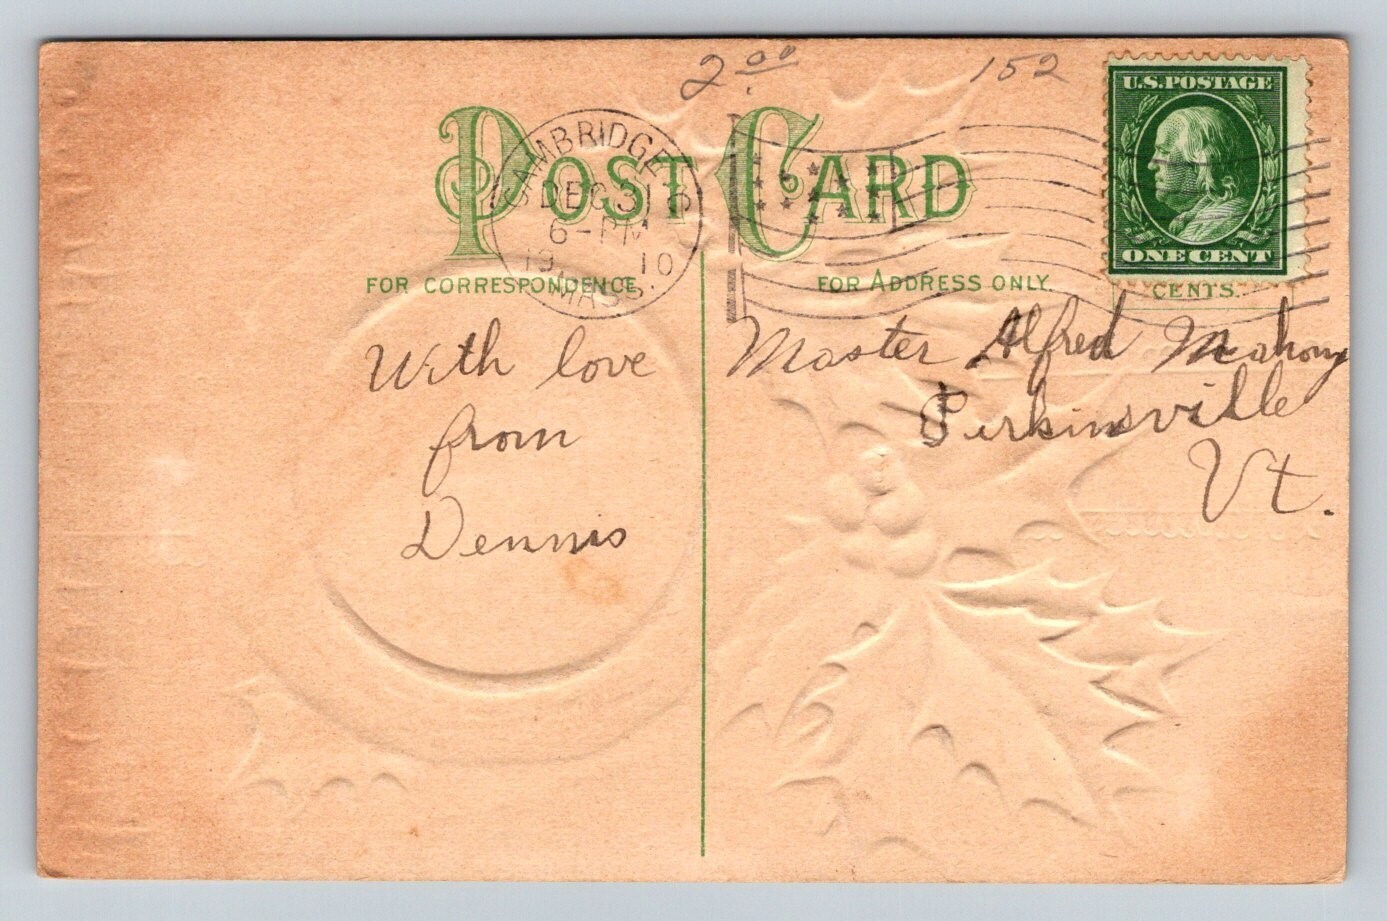 2.00 152
U.S. POSTAGE
ONE CENT
CENTS.
POST CARD
CAMBRIDGE, S
DEC 31
6-PM
1910
MASS.
FOR CORRESPONDENCE.
FOR ADDRESS ONLY.
With love
from
Dennis
Master Alfred Mahony
Perkinsville
Vt.